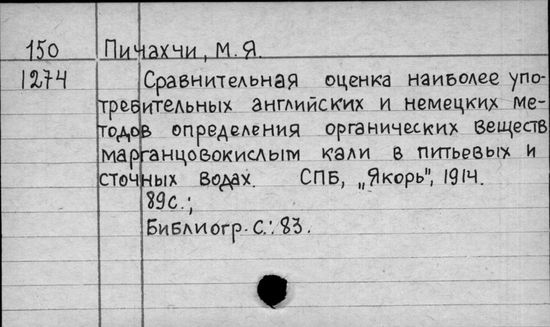 150 Пичахчи, М. Я.
1274 Сравнительная оценка наиболее упо-
требительных английских и немецких ме-
тодов определения органических веществ
марганцовокислым кали в питьевых и
сточных водах. СПБ, „Якорь", 1914.
89с.;
Библиогр. С.: 83.